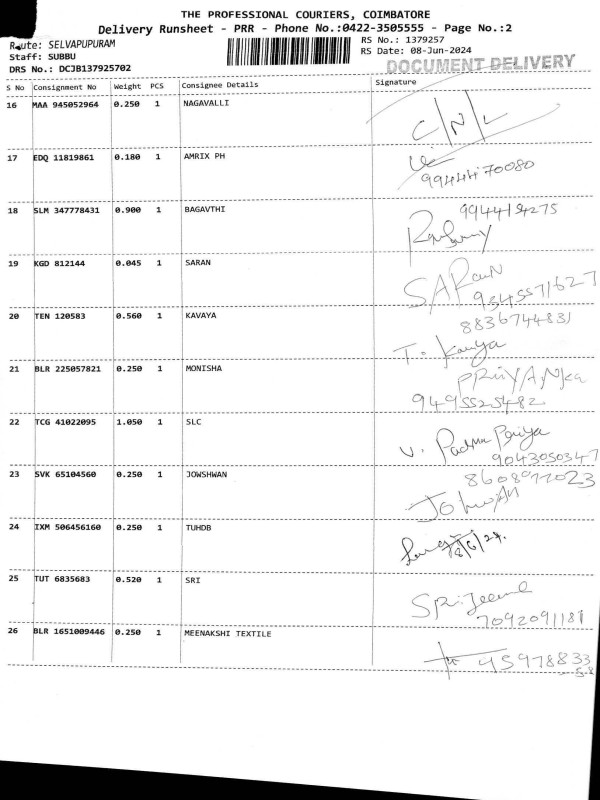 THE PROFESSIONAL COURIERS, COIMBATORE
Delivery Runsheet - PRR - Phone No.:0422-3505555 - Page No.:2
Route: SELVAPUPURAM
RS No.: 1379257
Staff: SUBBU
RS Date: 08-Jun-2024
DRS No.: DCJB137925702
DOCUMENT DELIVERY
S No Consignment No Weight PCS Consignee Details Signature
16 MAA 945052964 0.250 1 NAGAVALLI
C/N/L
17 EDQ 11819861 0.180 1 AMRIX PH
9944470080
18 SLM 347778431 0.900 1 BAGAVTHI
9944154275
19 KGD 812144 0.045 1 SARAN
SARAN
9345571627
20 TEN 120583 0.560 1 KAVAYA
8836744831
T. Kavya
21 BLR 225057821 0.250 1 MONISHA
PRIYANKA
9495525482
22 TCG 41022095 1.050 1 SLC
V. Padma Priya
9043050347
23 SVK 65104560 0.250 1 JOWSHWAN
8608972023
24 IXM 506456160 0.250 1 TUHDB
8/6/24.
25 TUT 6835683 0.520 1 SRI
7092091181
26 BLR 1651009446 0.250 1 MEENAKSHI TEXTILE
45978833
58